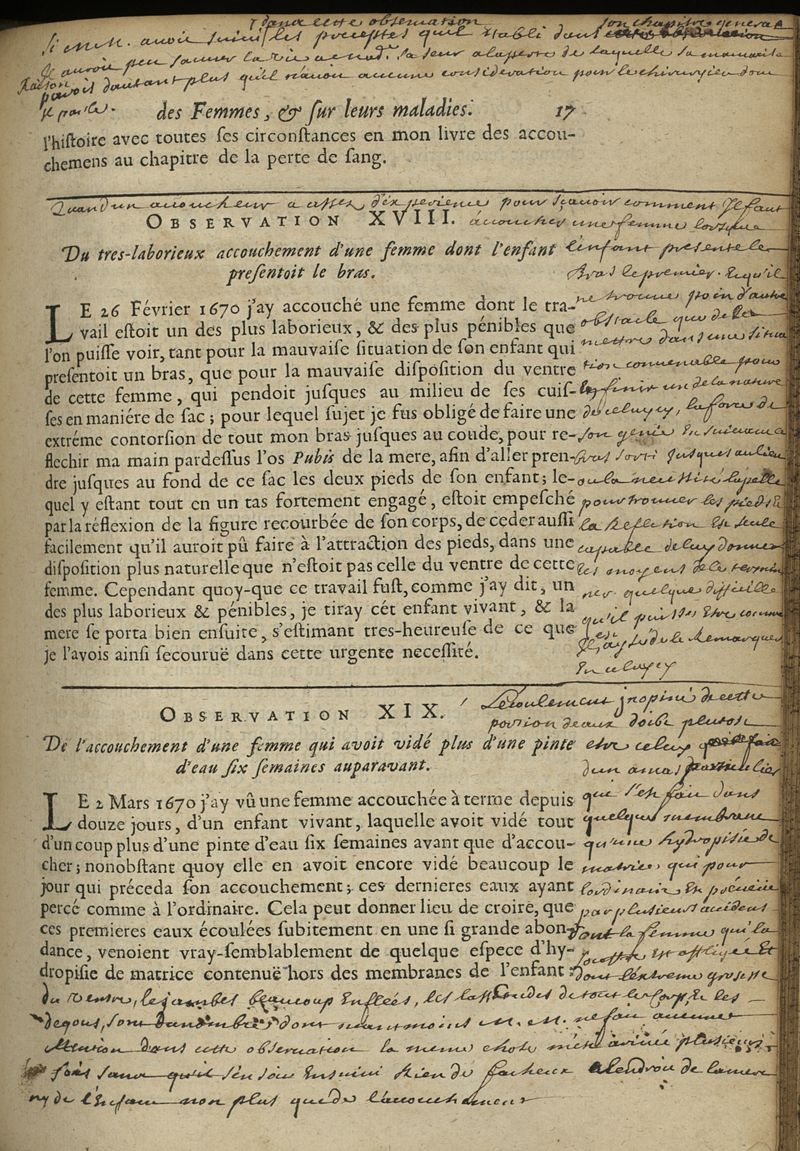 dans cette observation son chapitre general
si m. m. avoit suivi les preceptes qu'il etabli dans
pouvois dautant plus qu'il navoit aucune consideration pour le chirurgien dont
je parle.
des Femmes, & ſur leurs maladies. 17
l'hiſtoire avec toutes ſes circonſtances en mon livre des accou-
chemens au chapitre de la perte de ſang.
Quand un accoucheur a assez d'experience pour sçavoir comment il faut
OBSERVATION XVIII. accoucher une femme lorsque
Du tres-laborieux accouchement d'une femme dont l'enfant
preſentoit le bras.
l'enfant presente le
bras le premier. et qu'il
LE 26 Février 1670 j'ay accouché une femme dont le tra-
vail eſtoit un des plus laborieux, & des plus pénibles que
l'on puiſſe voir, tant pour la mauvaiſe ſituation de ſon enfant qui
preſentoit un bras, que pour la mauvaiſe diſpoſition du ventre
de cette femme, qui pendoit juſques au milieu de ſes cuiſ-
ſes en maniére de ſac; pour lequel ſujet je fus obligé de faire une
extréme contorſion de tout mon bras juſques au coude, pour re-
flechir ma main pardeſſus l'os Pubis de la mere, afin d'aller pren-
dre juſques au fond de ce ſac les deux pieds de ſon enfant; le-
quel y eſtant tout en un tas fortement engagé, eſtoit empeſché
par la réflexion de la figure recourbée de ſon corps, de ceder auſſi
facilement qu'il auroit pû faire à l'attraction des pieds, dans une
diſpoſition plus naturelle que n'eſtoit pas celle du ventre de cette
femme. Cependant quoy-que ce travail fuſt, comme j'ay dit, un
des plus laborieux & pénibles, je tiray cét enfant vivant, & la
mere ſe porta bien enſuite, s'eſtimant tres-heureuſe de ce que
je l'avois ainſi ſecouruë dans cette urgente neceſſité.
ne trouve point d'autre
obstacle que de les
mettre dans une situa
tion convenable pour
finir un de la nature
de celuycy, la force de
son genie
bras sorti jusques au lieu
pour trouver les pieds
la reflection est seule
capable de luy donner
les moyens de le termi
ner quelque difficille
qu'il puisse etre comme
en celuycy
OBSERVATION XIX.
L'ecoulement inopiné de cette
portion deaux doibt plutost
De l'accouchement d'une femme qui avoit vidé plus d'une pinte
d'eau ſix ſemaines auparavant.
LE 2 Mars 1670 j'ay vû une femme accouchée à terme depuis
douze jours, d'un enfant vivant, laquelle avoit vidé tout
d'un coup plus d'une pinte d'eau ſix ſemaines avant que d'accou-
cher; nonobſtant quoy elle en avoit encore vidé beaucoup le
jour qui préceda ſon accouchement; ces dernieres eaux ayant
percé comme à l'ordinaire. Cela peut donner lieu de croire, que
ces premieres eaux écoulées ſubitement en une ſi grande abon-
dance, venoient vray-ſemblablement de quelque eſpece d'hy-
dropiſie de matrice contenuë hors des membranes de l'enfant:
etre celuy
d'un amas particulier
que s'est fait dans
quelque membrane
qu'une hydropisie de
matrice, qui pour
lordinaire est precedée
par plusieurs accidens
dont la femme qui la
porte, est affligée et
dont l'extreme grosseur
du ventre, les jambes beaucoup enflées, les lassitudes de tout le corps, et les
attention dans cette observation la meme chose m'est arrivée plusieurs
fois sans qu'il s'en soit ensuivi rien de facheux a lendroit de la mere
ny de l'enfant non plus que de l'accouchement